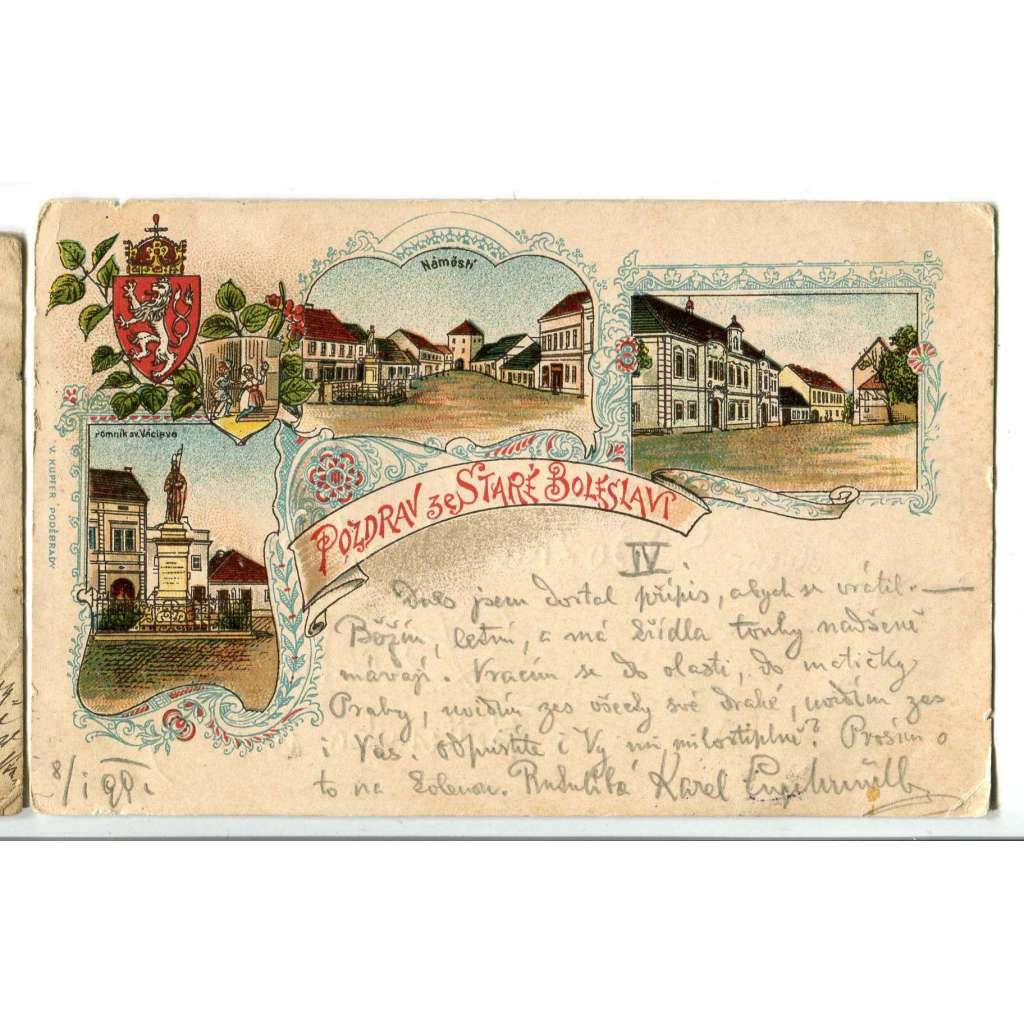 Náměstí
Pomník sv. Václava
V. KUPFER PODĚBRADY
POZDRAV ze STARÉ BOLESLAVI
IV.
Dnes jsem dostal přípis, abych se vrátil. —
Běžím, letím, a má křídla touhy nadšeně
mávají. Vracím se do vlasti, do matičky
Prahy, uvidím zes všecky své drahé, uvidím zes
i Vás. Odpustíte i Vy mi milostiplně? Prosím o
to na kolenou. Karel
8/I 98.